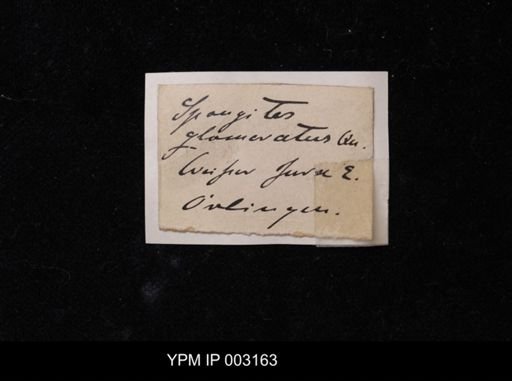 Spongites
glomeratus Qu.
Weisser Jura ε.
Örlingen.
YPM IP 003163